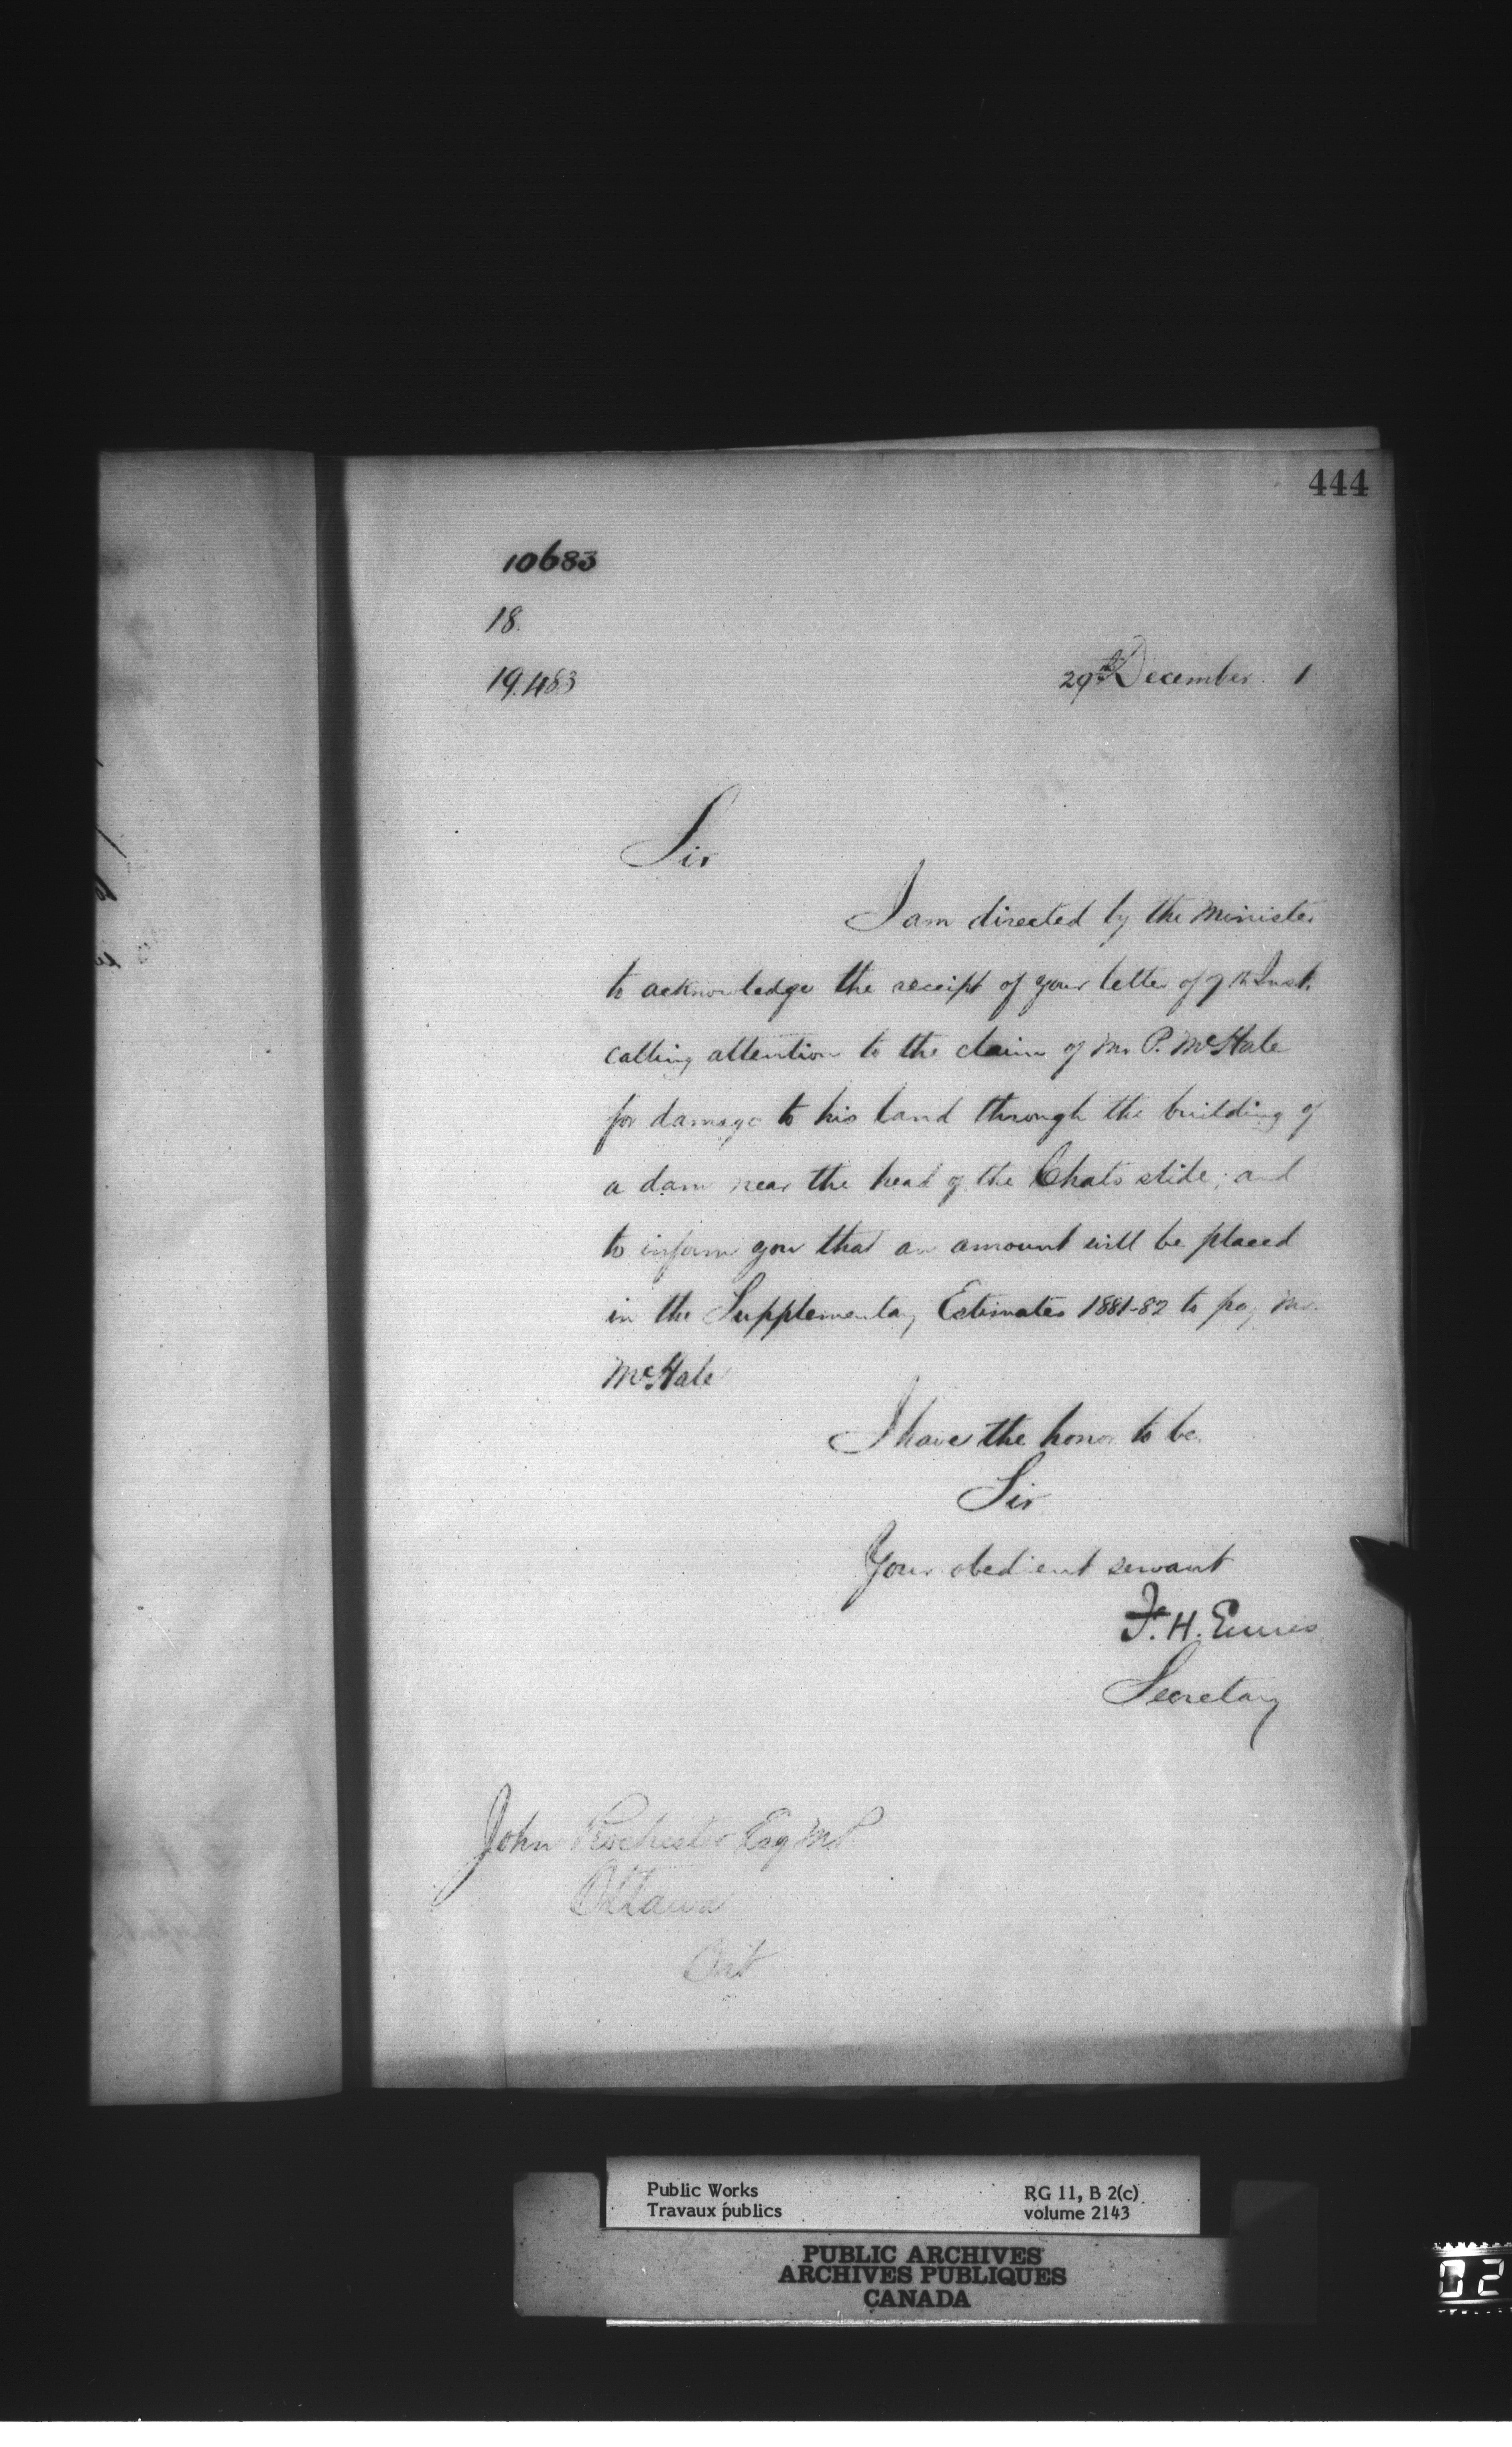 444
10683
18.
19.483
29th December. 1
Sir
I am directed by the Minister
to acknowledge the receipt of your letter of 7th Inst.
calling attention to the claim of Mr P. McHale
for damage to his land through the building of
a dam near the head of the Chats slide; and
to inform you that an amount will be placed
in the Supplementary Estimates 1881-82 to pay Mr.
McHale
I have the honor to be
Sir
Your obedient servant
F. H. Ennis
Secretary
John Rochester Esq MP
Ottawa
Ont
Public Works
Travaux publics
RG 11, B 2(c)
volume 2143
PUBLIC ARCHIVES
ARCHIVES PUBLIQUES
CANADA
02